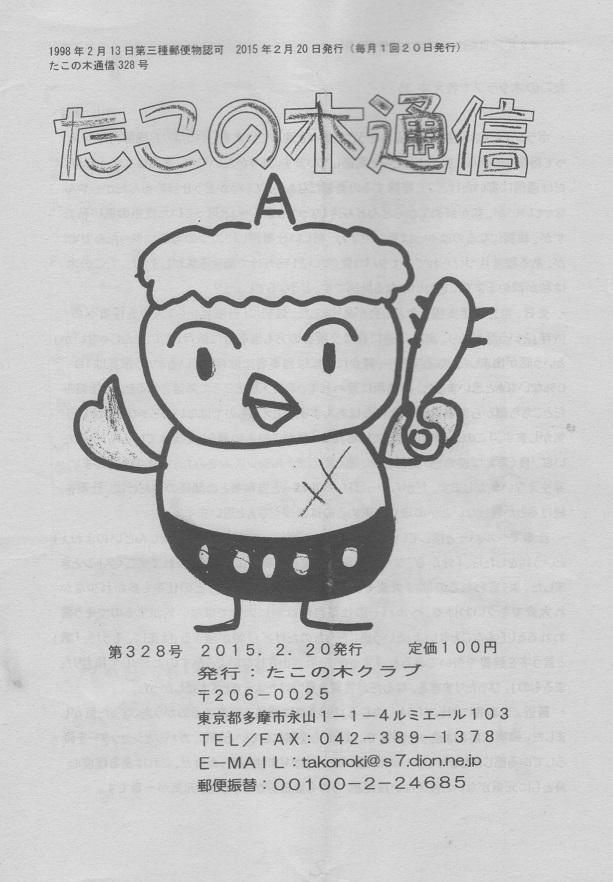 1998年2月13日第三種郵便物認可　2015年2月20日発行（毎月1回20日発行）
たこの木通信328号
たこの木通信
第328号　2015．2．20発行　　定価100円
発行：たこの木クラブ
〒206－0025
東京都多摩市永山1－1－4ルミエール103
TEL／FAX　042－389－1378
E-MAIL：takonoki@s7.dion.ne.jp
郵便振替：00100－2－24685